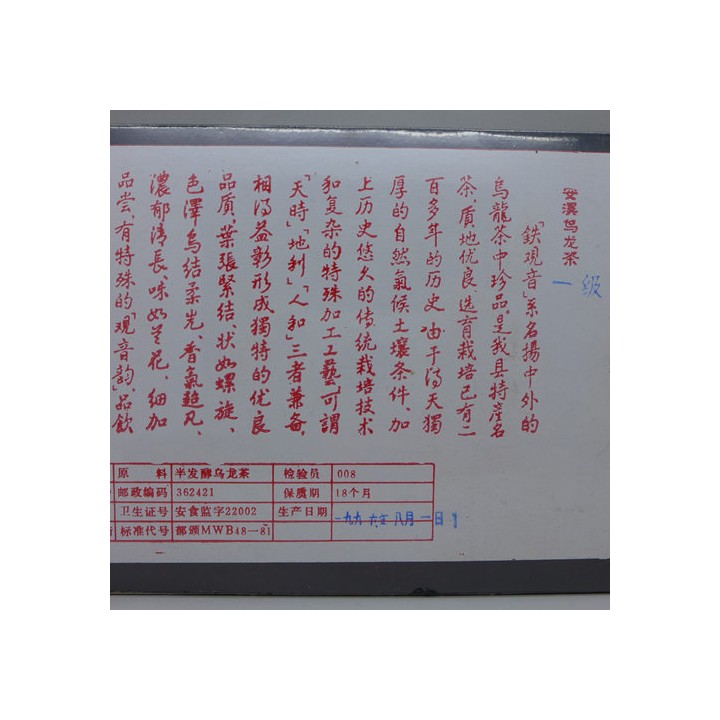 安溪乌龙茶
一级
「鉄观音」系名揚中外的
烏龍茶中珍品,是我县特産名
茶,质地优良,选育栽培已有二
百多年的历史,由于得天獨
厚的自然氣候土壤条件、加
上历史悠久的传统栽培技术
和复杂的特殊加工工藝,可謂
「天時」「地利」「人和」三者兼备,
相得益彰形成獨特的优良
品质,葉張緊结、状如螺旋、
色澤烏结柔光、香氣超凡、
濃郁清長、味如兰花、细加
品尝、有特殊的「观音韵」,品飲
原 料 半发酵乌龙茶 检验员 008
邮政编码 362421 保质期 18个月
卫生证号 安食监字22002 生产日期 一九九六年八月一日
标准代号 部颁MWB48—81